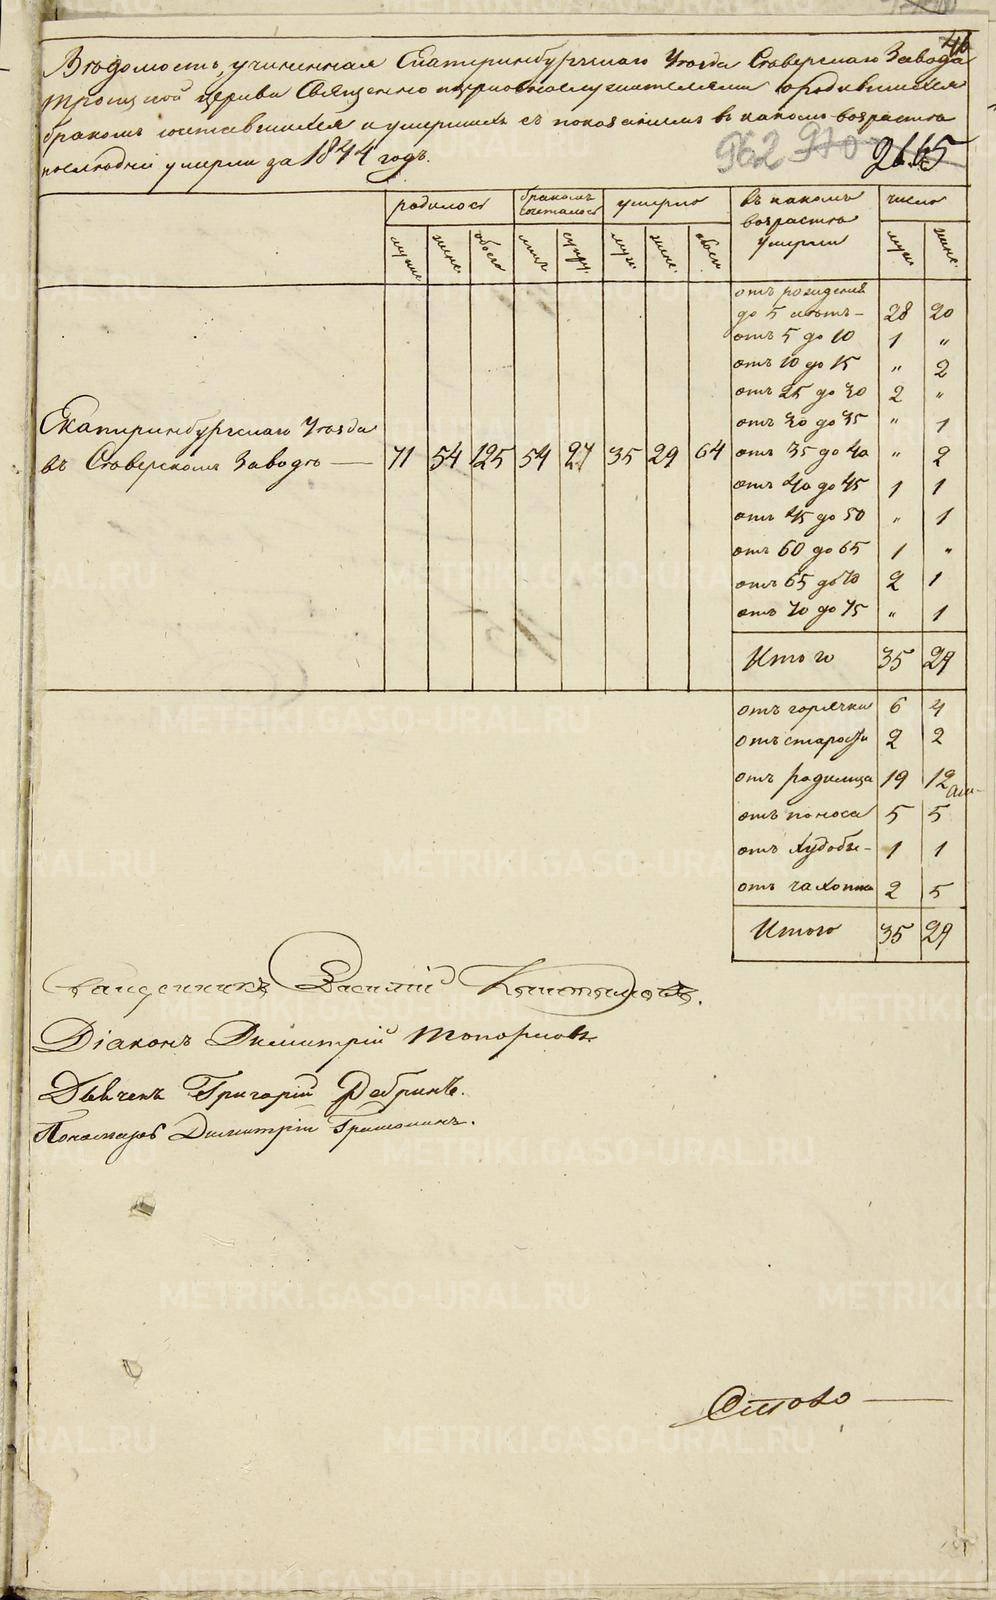 46
Вѣдомость, учиненная Екатеринбургскаго Уѣзда Сѣверскаго Завода
Троицкой церкви Священно церковнослужителями о родившихся
бракомъ сочетавшихся и умершихъ съ показаніемъ въ какомъ возрастѣ
послѣдніе умерли за 1844 годъ.
962 970 2665
родилось бракомъ сочеталось умерло въ какомъ возрастѣ умерли число
муже. женс. обоего муж. женс. обоего муж. женс.
отъ рожденія
до 5 лѣтъ 28 20
отъ 5 до 10 1 "
отъ 10 до 15 " 2
отъ 25 до 30 2 "
отъ 30 до 35 " 1
Екатеринбургскаго Уѣзда
въ Сѣверскомъ Заводѣ — 71 54 125 54 27 35 29 64 отъ 35 до 40 " 2
отъ 40 до 45 1 1
отъ 45 до 50 " 1
отъ 60 до 65 1 "
отъ 65 до 70 2 1
отъ 70 до 75 " 1
Итого 35 29
отъ горячки 6 4
отъ старости 2 2
отъ родимца 19 12
отъ поноса 5 5
отъ худобы 1 1
отъ чахотки 2 5
Итого 35 29
Священникъ Василій
Діаконъ Димитрій Топорковъ
Дьячекъ Григорій Ребринъ.
Пономарь Димитрій
METRIKI.GASO-URAL.RU